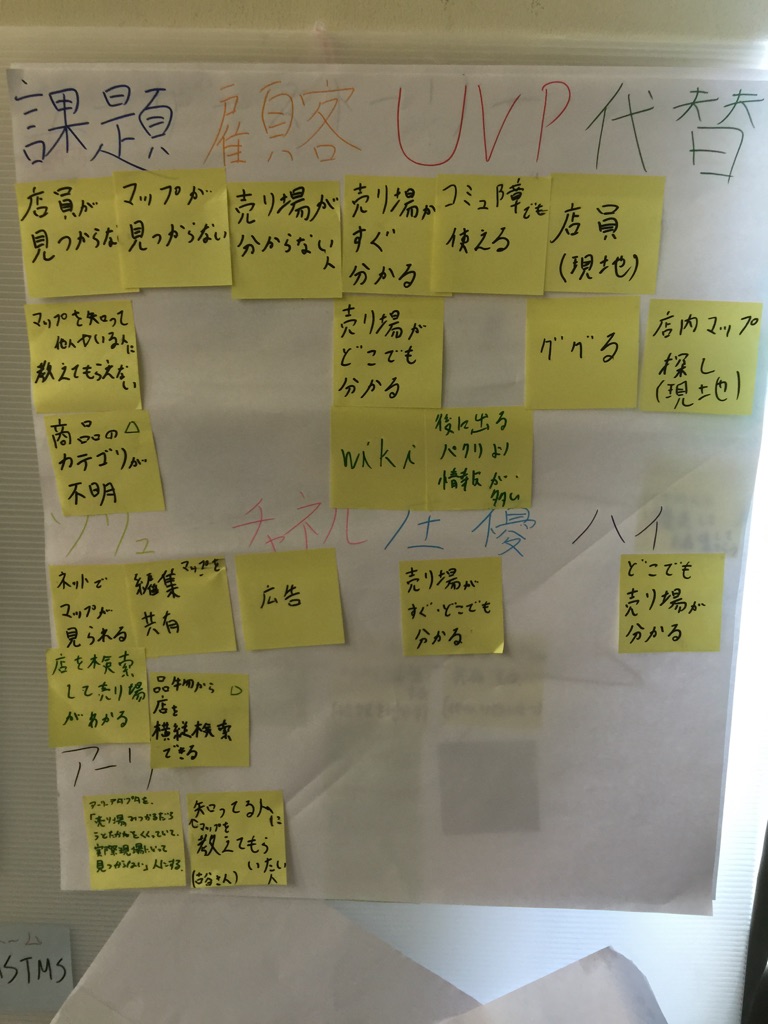 課題 顧客 UVP 代替
店員が
見つからな
マップが
見つからない
売り場が
分からない人
売り場が
すぐ
分かる
コミュ障でも
使える
店員
(現地)
マップを知って
他人がいる人に
教えてもらえない
売り場が
どこでも
分かる
ググる
店内マップ
探し
(現地)
商品の△
カテゴリが
不明
wiki
後に出る
パクリより
情報が
多い
ソリュ チャネル 圧 優 ハイ
ネットで
マップが
見られる
マップを
編集
共有
広告
売り場が
すぐ・どこでも
分かる
どこでも
売り場が
分かる
店を検索
して売り場
がわかる
品物から
店を
横縦検索
できる
アーリ
アーリーアダプタを、
「売り場みつかるだろ
うとたかをくくっていて、
実際現場にいって
見つからない」人にする。
知ってる人に
マップを
教えてもら
いたい
人
(古谷さん)
STMS